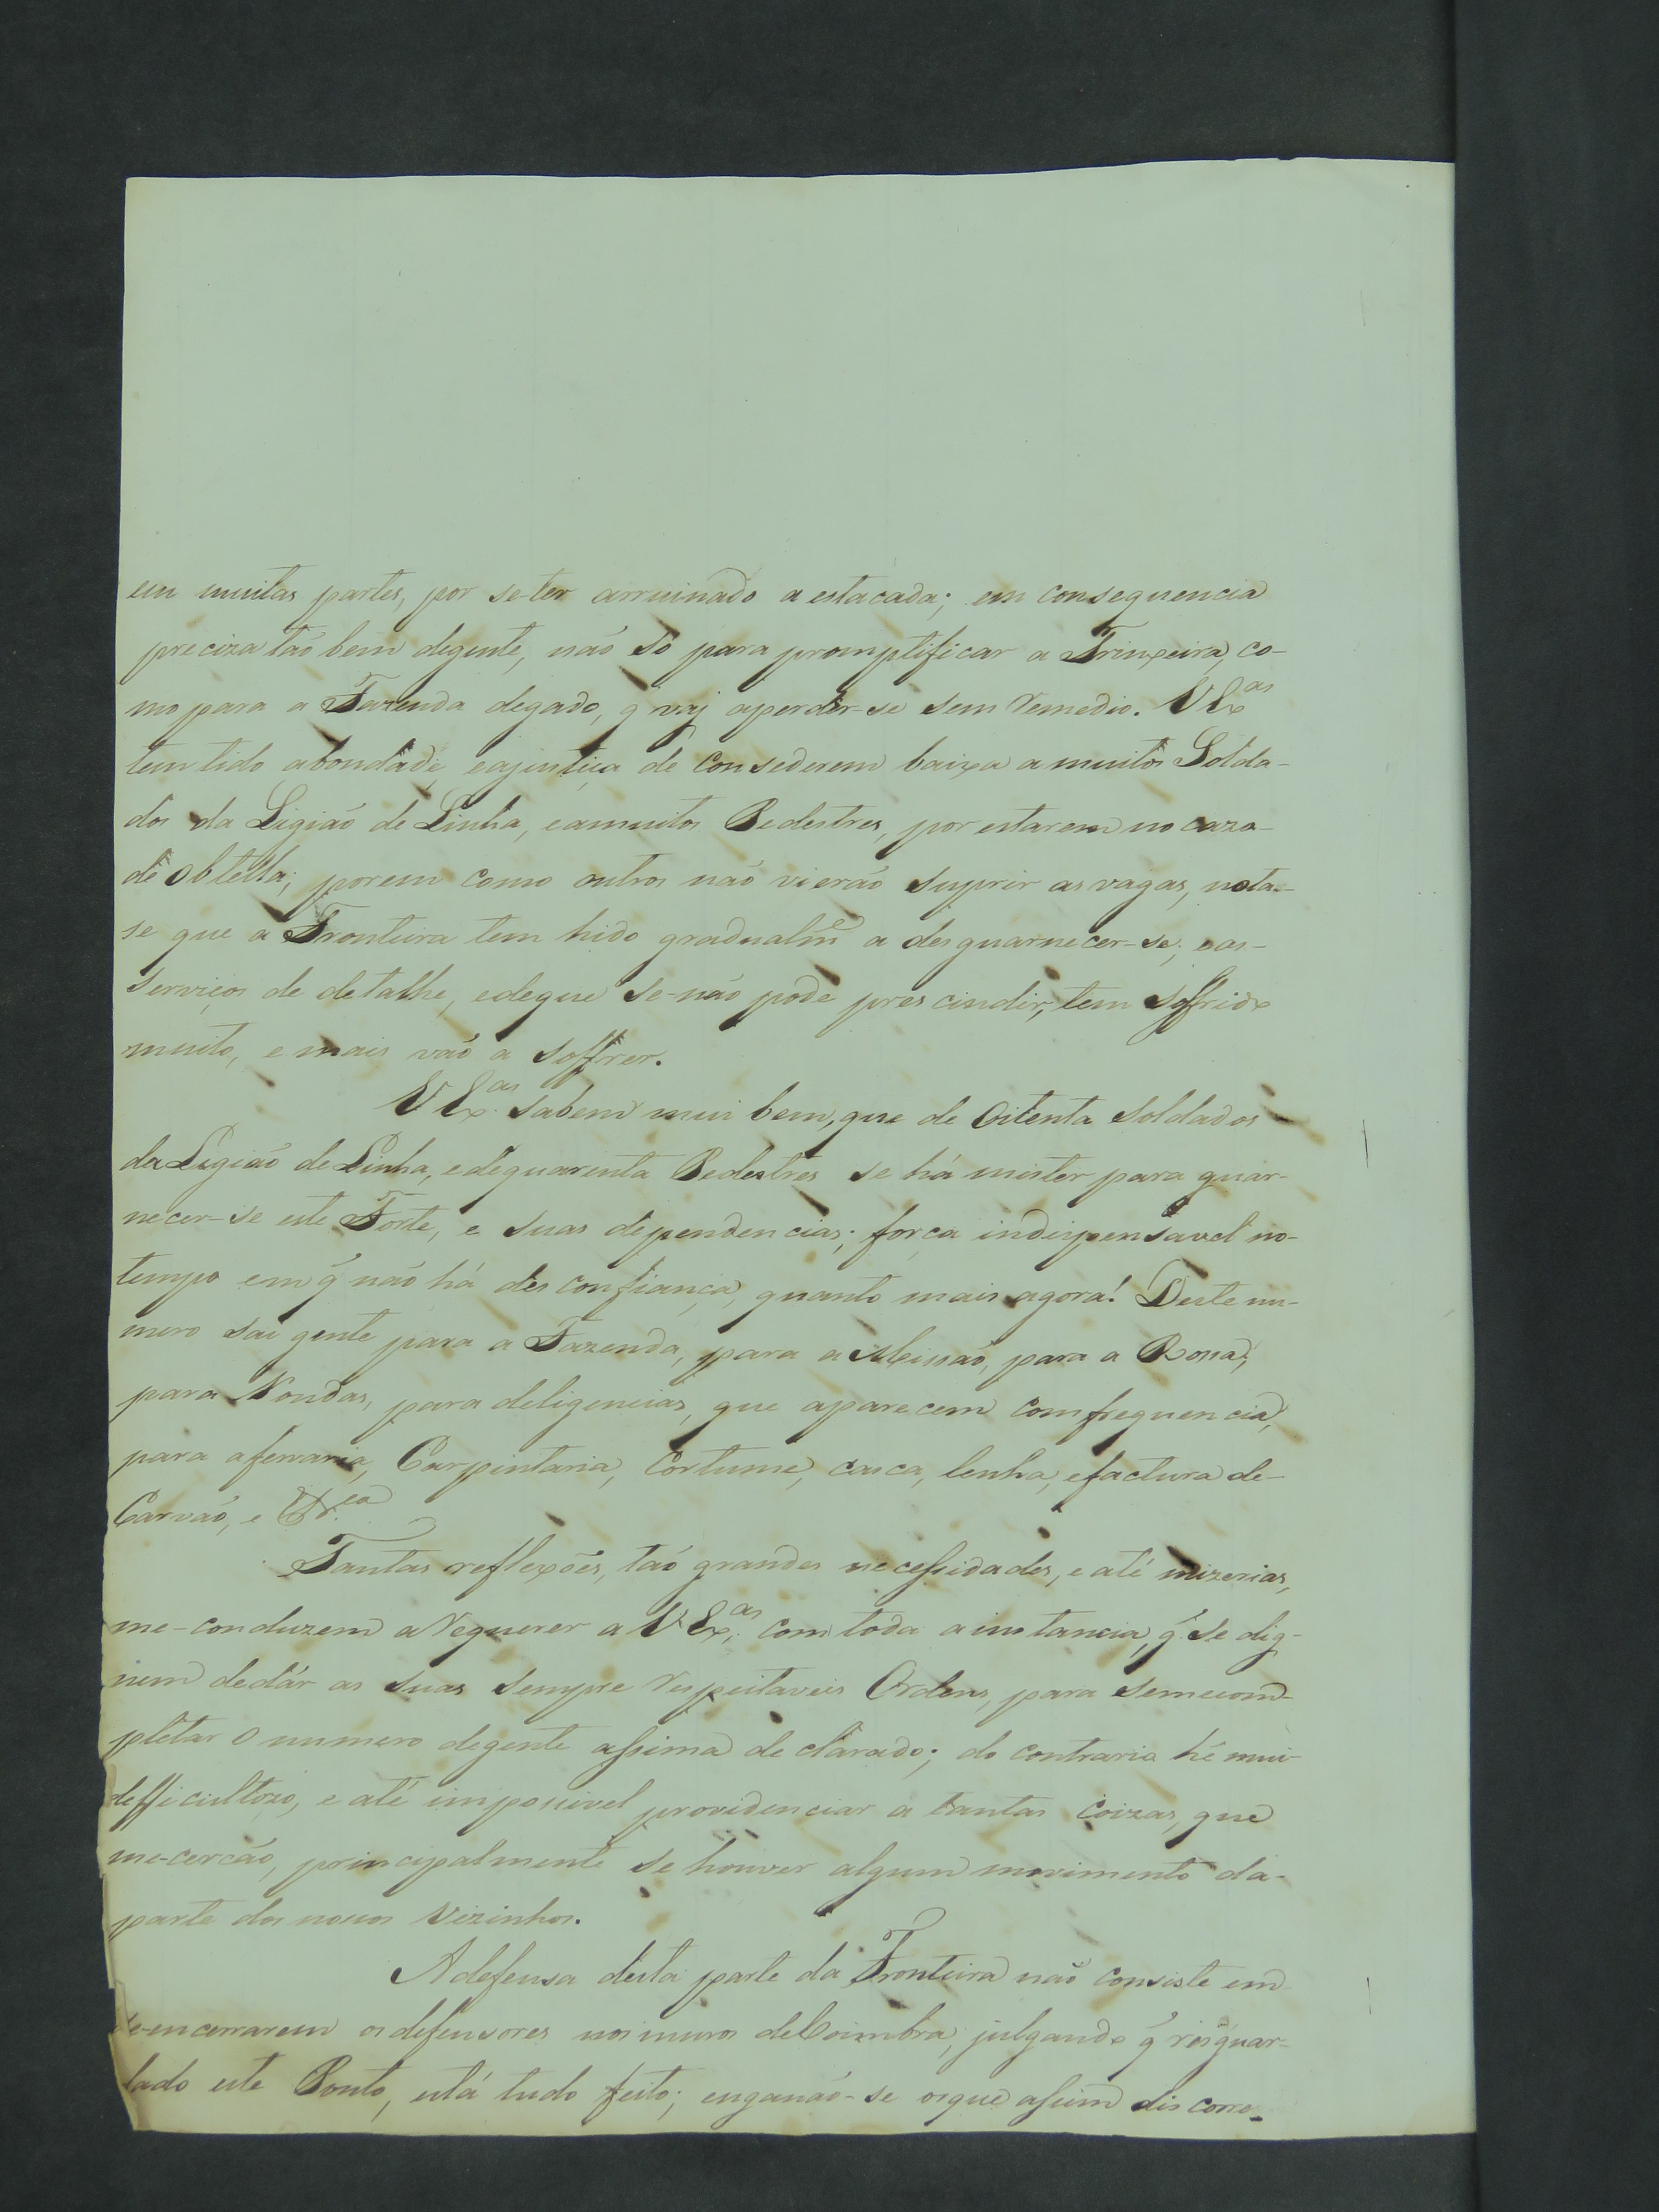 em muitas partes, por se-ter arruinado a estacada; em consequencia
preciza tão bem degente, não só para promptificar a Trinxeira, co-
mo para a Fazenda degado, q̃ vaj aperder-se sem remedio. VEx.as
tem tido abondade, eajustiça de consederem baixa a muitos Solda-
dos da Ligião de Linha, eamuitos Pedestres, por estarem no cazo
de obtella; porem como outros não vierão suprir as vagas, nota-
se que a Fronteira tem hido gradualm.e a desguarnecer-se, eos-
serviços de detalhe, edeque se-não pode prescindir, tem soffrido
muito, e mais vão a soffrer.
VEx.as sabem mui bem, que de Oitenta soldados
da Ligião de Linha, edequarenta Pedestres se há mister para guar-
necer-se este Forte, e suas dependencias; força indispensavel no-
tempo em q̃ não há desconfiança, quanto mais agora! Deste nu-
mero sai gente para a Fazenda, para a Missão, para a Rossa,
para Rondas, para deligencias, que aparecem comfrequencia,
para aferraria, Carpintaria, Cortume, casca, lenha, efactura de-
Carvão, e &.ca
Tantas reflexões, tão grandes necessidades, e até mizerias,
me-conduzem aRequerer a VEx.as, com toda a instancia, q̃ se dig-
nem dedár as suas sempre respeitaveis Ordens, para semecom-
pletar o numero degente assima declarado; do contrario hé mui
defficultozo, e até impossivel providenciar a tantas coizas, que
me-cercão, principalmente se houver algum movimento da-
parte dos nossos vizinhos.
A defensa desta parte da Fronteira não consiste em
se-encerrarem os defensores nos muros deCoimbra, julgando q̃ resguar-
dado este Ponto, está tudo feito; enganão-se osque assim discorre-